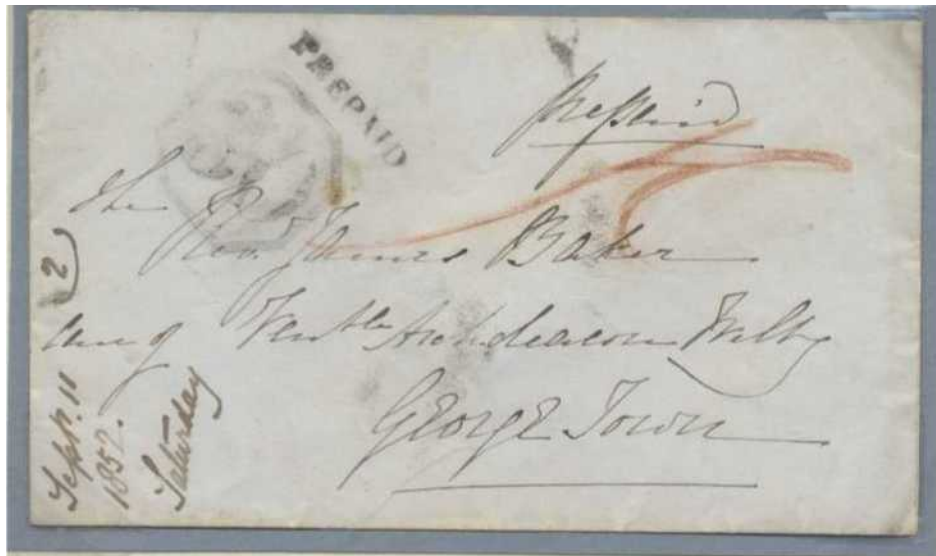 PREPAID
prepaid
The
Revd. James Baker
Venble Archdeacon
GEORGE Town
2
Sept. 11
1852.
Saturday